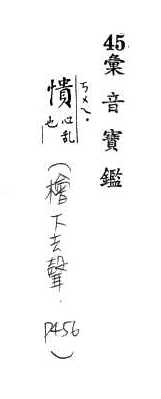 45彙音寶鑑
憒 ㄎㄨㄟˋ 心乱也
(檜下去聲. P456)